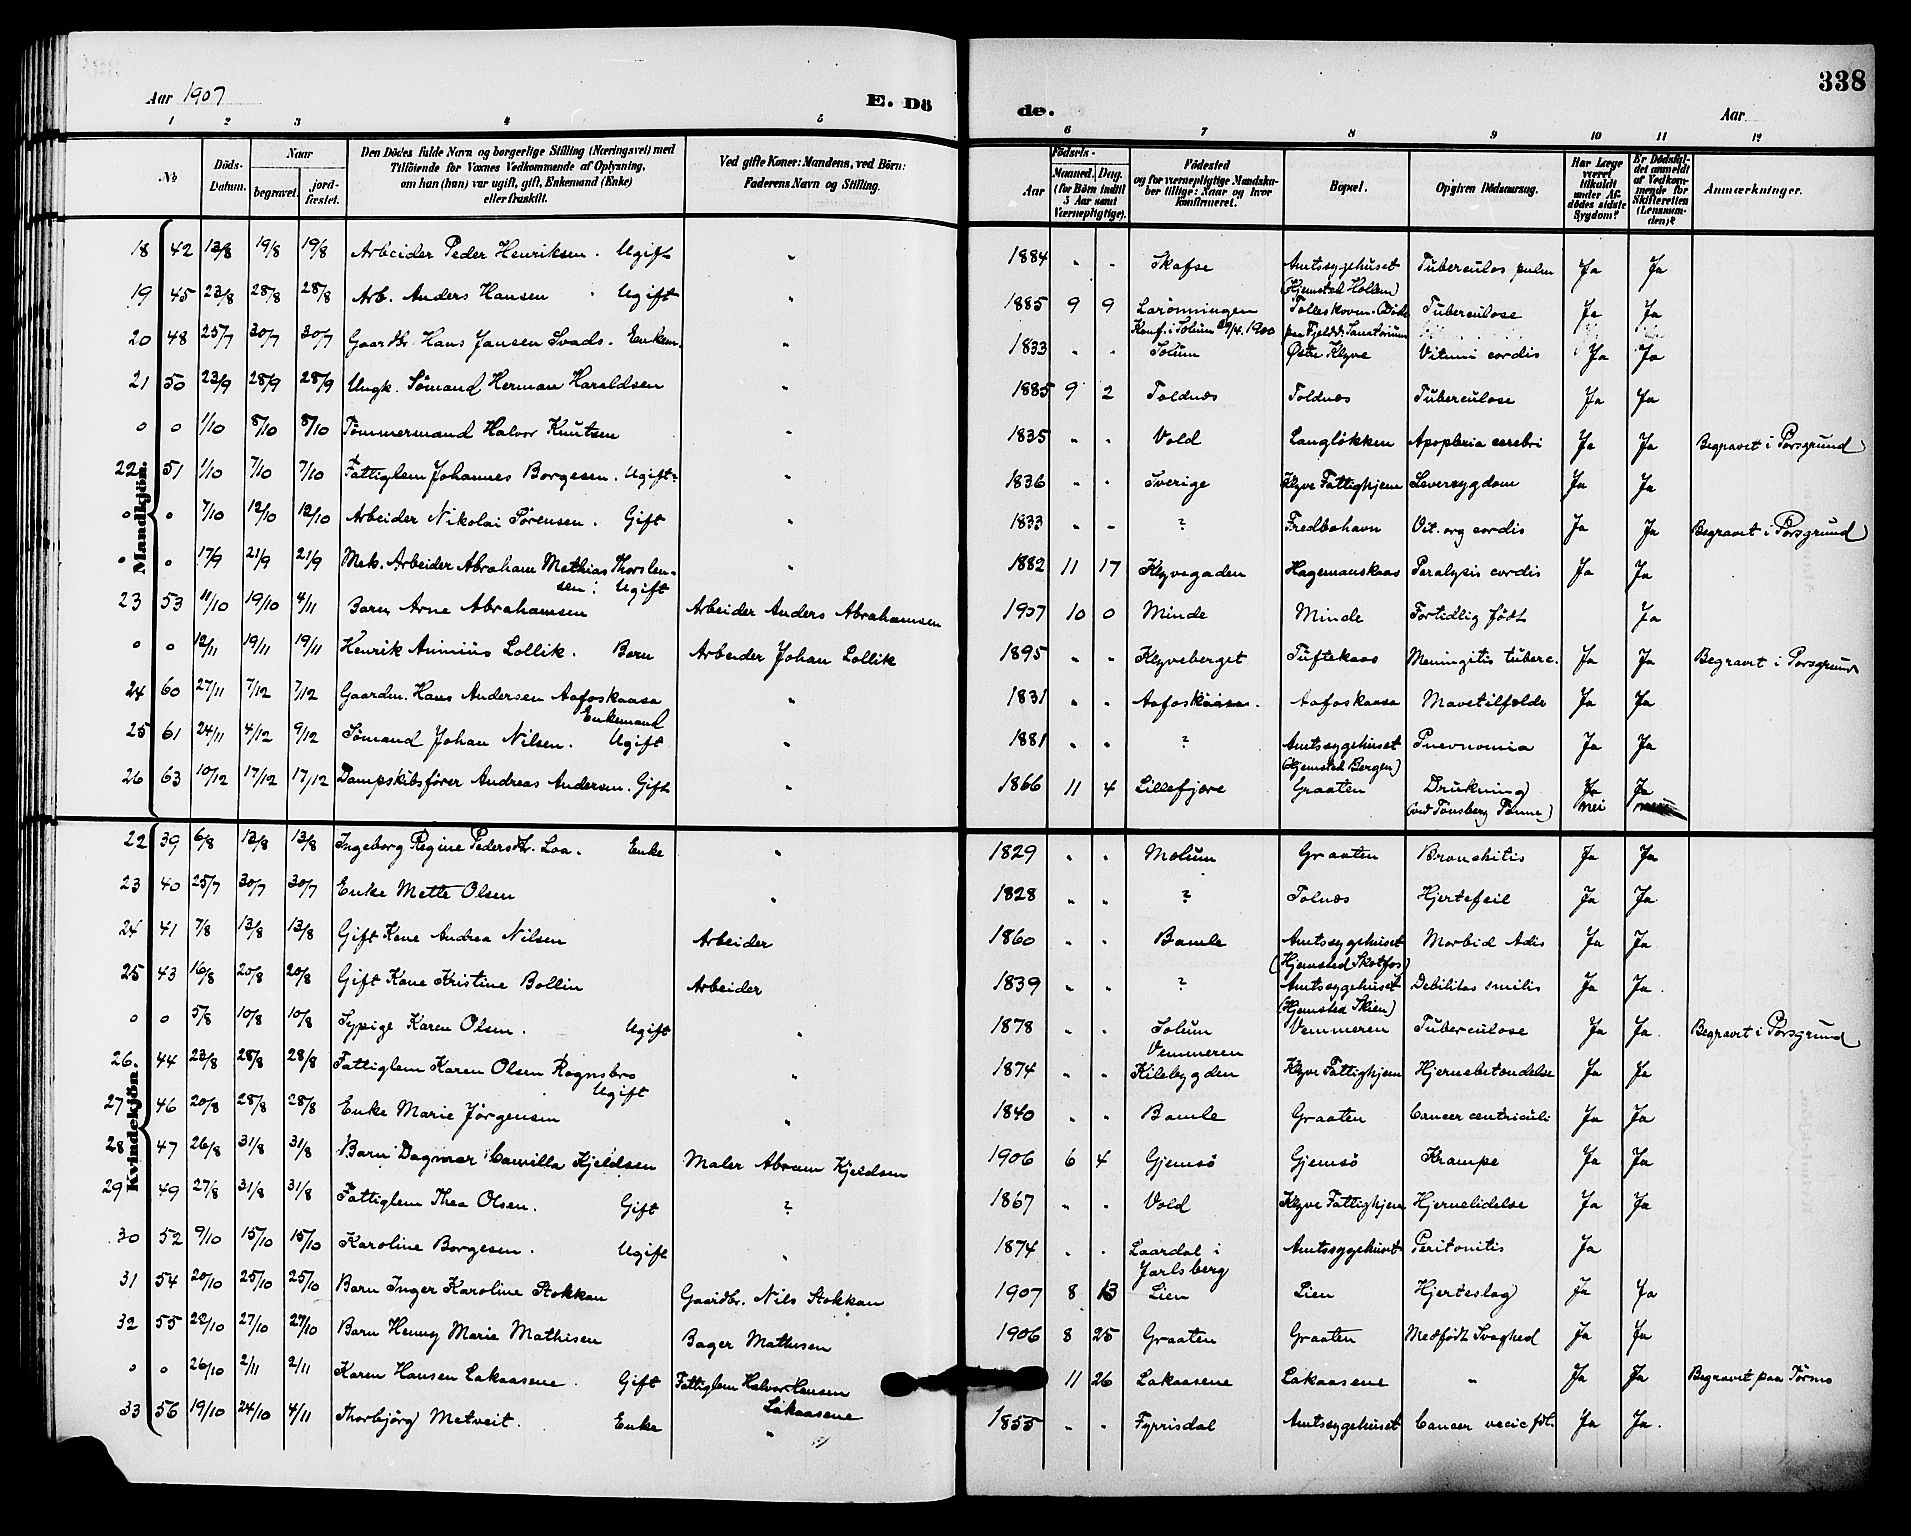 338
Aar 1907 E. Dö de. Aar
1 2 3 4 5 6 7 8 9 10 11 12
No Döds-Datum. Naar begravet. jord-fæstet. Den Dödes fulde Navn og borgerlige Stilling (Næringsvei) med Tilföiende for Voxnes Vedkommende af Oplysning, om han (hun) var ugift, gift, Enkemand (Enke) eller fraskilt. Ved gifte Koner: Mandens, ved Börn: Faderens Navn og Stilling. Födsels- Aar Maaned. Dag. (for Börn indtil 5 Aar samt Værnepligtige). Födested og for værnepligtige Mandska-ber tillige: Naar og hvor konfirmeret. Bopæl. Opgiven Dödsaarsag. Har Læge været tilkaldt under Af-dödes sidste Sygdom? Er Dödsfal-det anmeldt af Vedkom-mende for Skifteretten (Lensman-den)? Anmærkninger.
Mandkjön.
18 42 13/8 19/8 19/8 Arbeider Peder Henriksen. Ugift " 1884 " " Skafse Amtssygehuset Tuberculos pulm Ja Ja
(Hjemsted Hollen)
19 45 23/8 28/8 28/8 Arb. Anders Hansen Ugift " 1885 9 9 Larønningen Tolleskoven. Døde Tuberculose Ja Ja
Konf. i Solum 29/4. 1900 paa Fjeldt. Sanatorium
20 48 25/7 30/7 30/7 Gaardbr. Hans Jansen Svads. Enkem. " 1833 " " Solum Østre Klyve Vitium cordis Ja Ja
21 50 23/9 28/9 28/9 Ungk. Sømand Herman Haraldsen " 1885 9 2 Toldnæs Toldnæs Tuberculose Ja Ja
o o 1/10 8/10 8/10 Tømmermand Halvor Knutsen " 1835 " " Vold Langløkken Apoplexia cerebri Ja Ja Begravet i Porsgrund
22 51 1/10 7/10 7/10 Fattiglem Johannes Borgesen. Ugift " 1836 " " Sverige Klyve Fattighjem Leversygdom Ja Ja
o o 7/10 12/10 12/10 Arbeider Nikolai Sørensen. Gift " 1833 " " ? Fredbohavn Vit. org cordis Ja Ja Begravet i Porsgrund
o o 17/9 21/9 21/9 Mek. Arbeider Abraham Mathias Thorslen- " 1882 11 17 Klyvegaden Hagemanskaas Paralysis cordis Ja Ja
sen: Ugift
23 53 11/10 19/10 4/11 Barn Arne Abrahamsen Arbeider Anders Abrahamsen 1907 10 0 Minde Minde Fortidlig født Ja
o o 12/11 19/11 19/11 Henrik Animius Lollik. Barn Arbeider Johan Lollik 1895 " " Klyveberget Tuftekaas Meningitis tuberc. Ja Ja Begravet i Porsgrund
24 60 27/11 7/12 7/12 Gaardm. Hans Andersen Aafoskaasa " 1831 " " Aafoskaasa. Aafoskaasa Mavetilfælde Ja Ja
Enkemand
25 61 24/11 4/12 9/12 Sømand Johan Nilsen. Ugift " 1881 " " ? Amtssygehuset Pnevnomia Ja Ja
(Hjemsted Bergen)
26 63 10/12 17/12 17/12 Dampskibsfører Andreas Andersen. Gift " 1866 11 4 Lillefjære Graaten Drukning Ja Ja
(ved Tønsberg Tønne) nei nei
Kvindekjön.
22 39 6/8 13/8 13/8 Ingeborg Regine Pedersdtr. Loa. Enke " 1829 " " Mælum Graaten Bronchitis Ja Ja
23 40 25/7 30/7 30/7 Enke Mette Olsen " 1828 " " ? Tolnæs Hjertefeil Ja Ja
24 41 7/8 13/8 13/8 Gift Kone Andrea Nilsen Arbeider 1860 " " Bamle Amtssygehuset Morbid Adis Ja Ja
(Hjemsted Skotfos)
25 43 16/8 20/8 20/8 Gift Kone Kristine Bollin Arbeider 1839 " " ? Amtssygehuset Debilitas senilis Ja Ja
(Hjemsted Skien)
o o 5/8 10/8 10/8 Sypige Karen Olsen. Ugift " 1878 " " Solum Vemmeren Tuberculose Ja Ja Begravet i Porsgrund
Vemmeren
26 44 23/8 28/8 28/8 Fattiglem Karen Olsen Rognsbro " 1874 " " Kilebygden Klyve Fattighjem Hjernebetændelse Ja Ja
Ugift
27 46 20/8 28/8 28/8 Enke Marie Jørgensen " 1840 " " Bamle Graaten Cancer centriculi Ja Ja
28 47 26/8 31/8 31/8 Barn Dagmar Camilla Kjeldsen Maler Abram Kjeldsen 1906 6 4 Gjemsø Gjemsø Krampe Ja Ja
29 49 27/8 31/8 31/8 Fattiglem Thea Olsen. Gift ? 1867 " " Vold Klyve Fattighjem Hjernelidelse Ja Ja
30 52 9/10 15/10 15/10 Karoline Borgesen. Ugift " 1874 " " Laardal i Amtssygehuset Peritonitis Ja
Jarlsberg
31 54 20/10 25/10 25/10 Barn Inger Karoline Stokkan Gaardbr. Nils Stokkan 1907 8 13 Lien Lien Hjerteslag Ja Ja
32 55 22/10 27/10 27/10 Barn Henny Marie Mathisen Bager Mathisen 1906 8 25 Graaten Graaten Medfødt Svaghed Ja Ja
o o 26/10 2/11 2/11 Karen Hansen Lakaasene. Gift Fattiglem Halvor Hansen 11 26 Lakaasene Lakaasene " Ja Ja Begravet paa Tørmo
Lakaasene
33 56 19/10 24/10 4/11 Thorbjörg Metveit. Enke " 1855 " " Fyrrisdal Amtssygehuset Cancer Ja Ja.